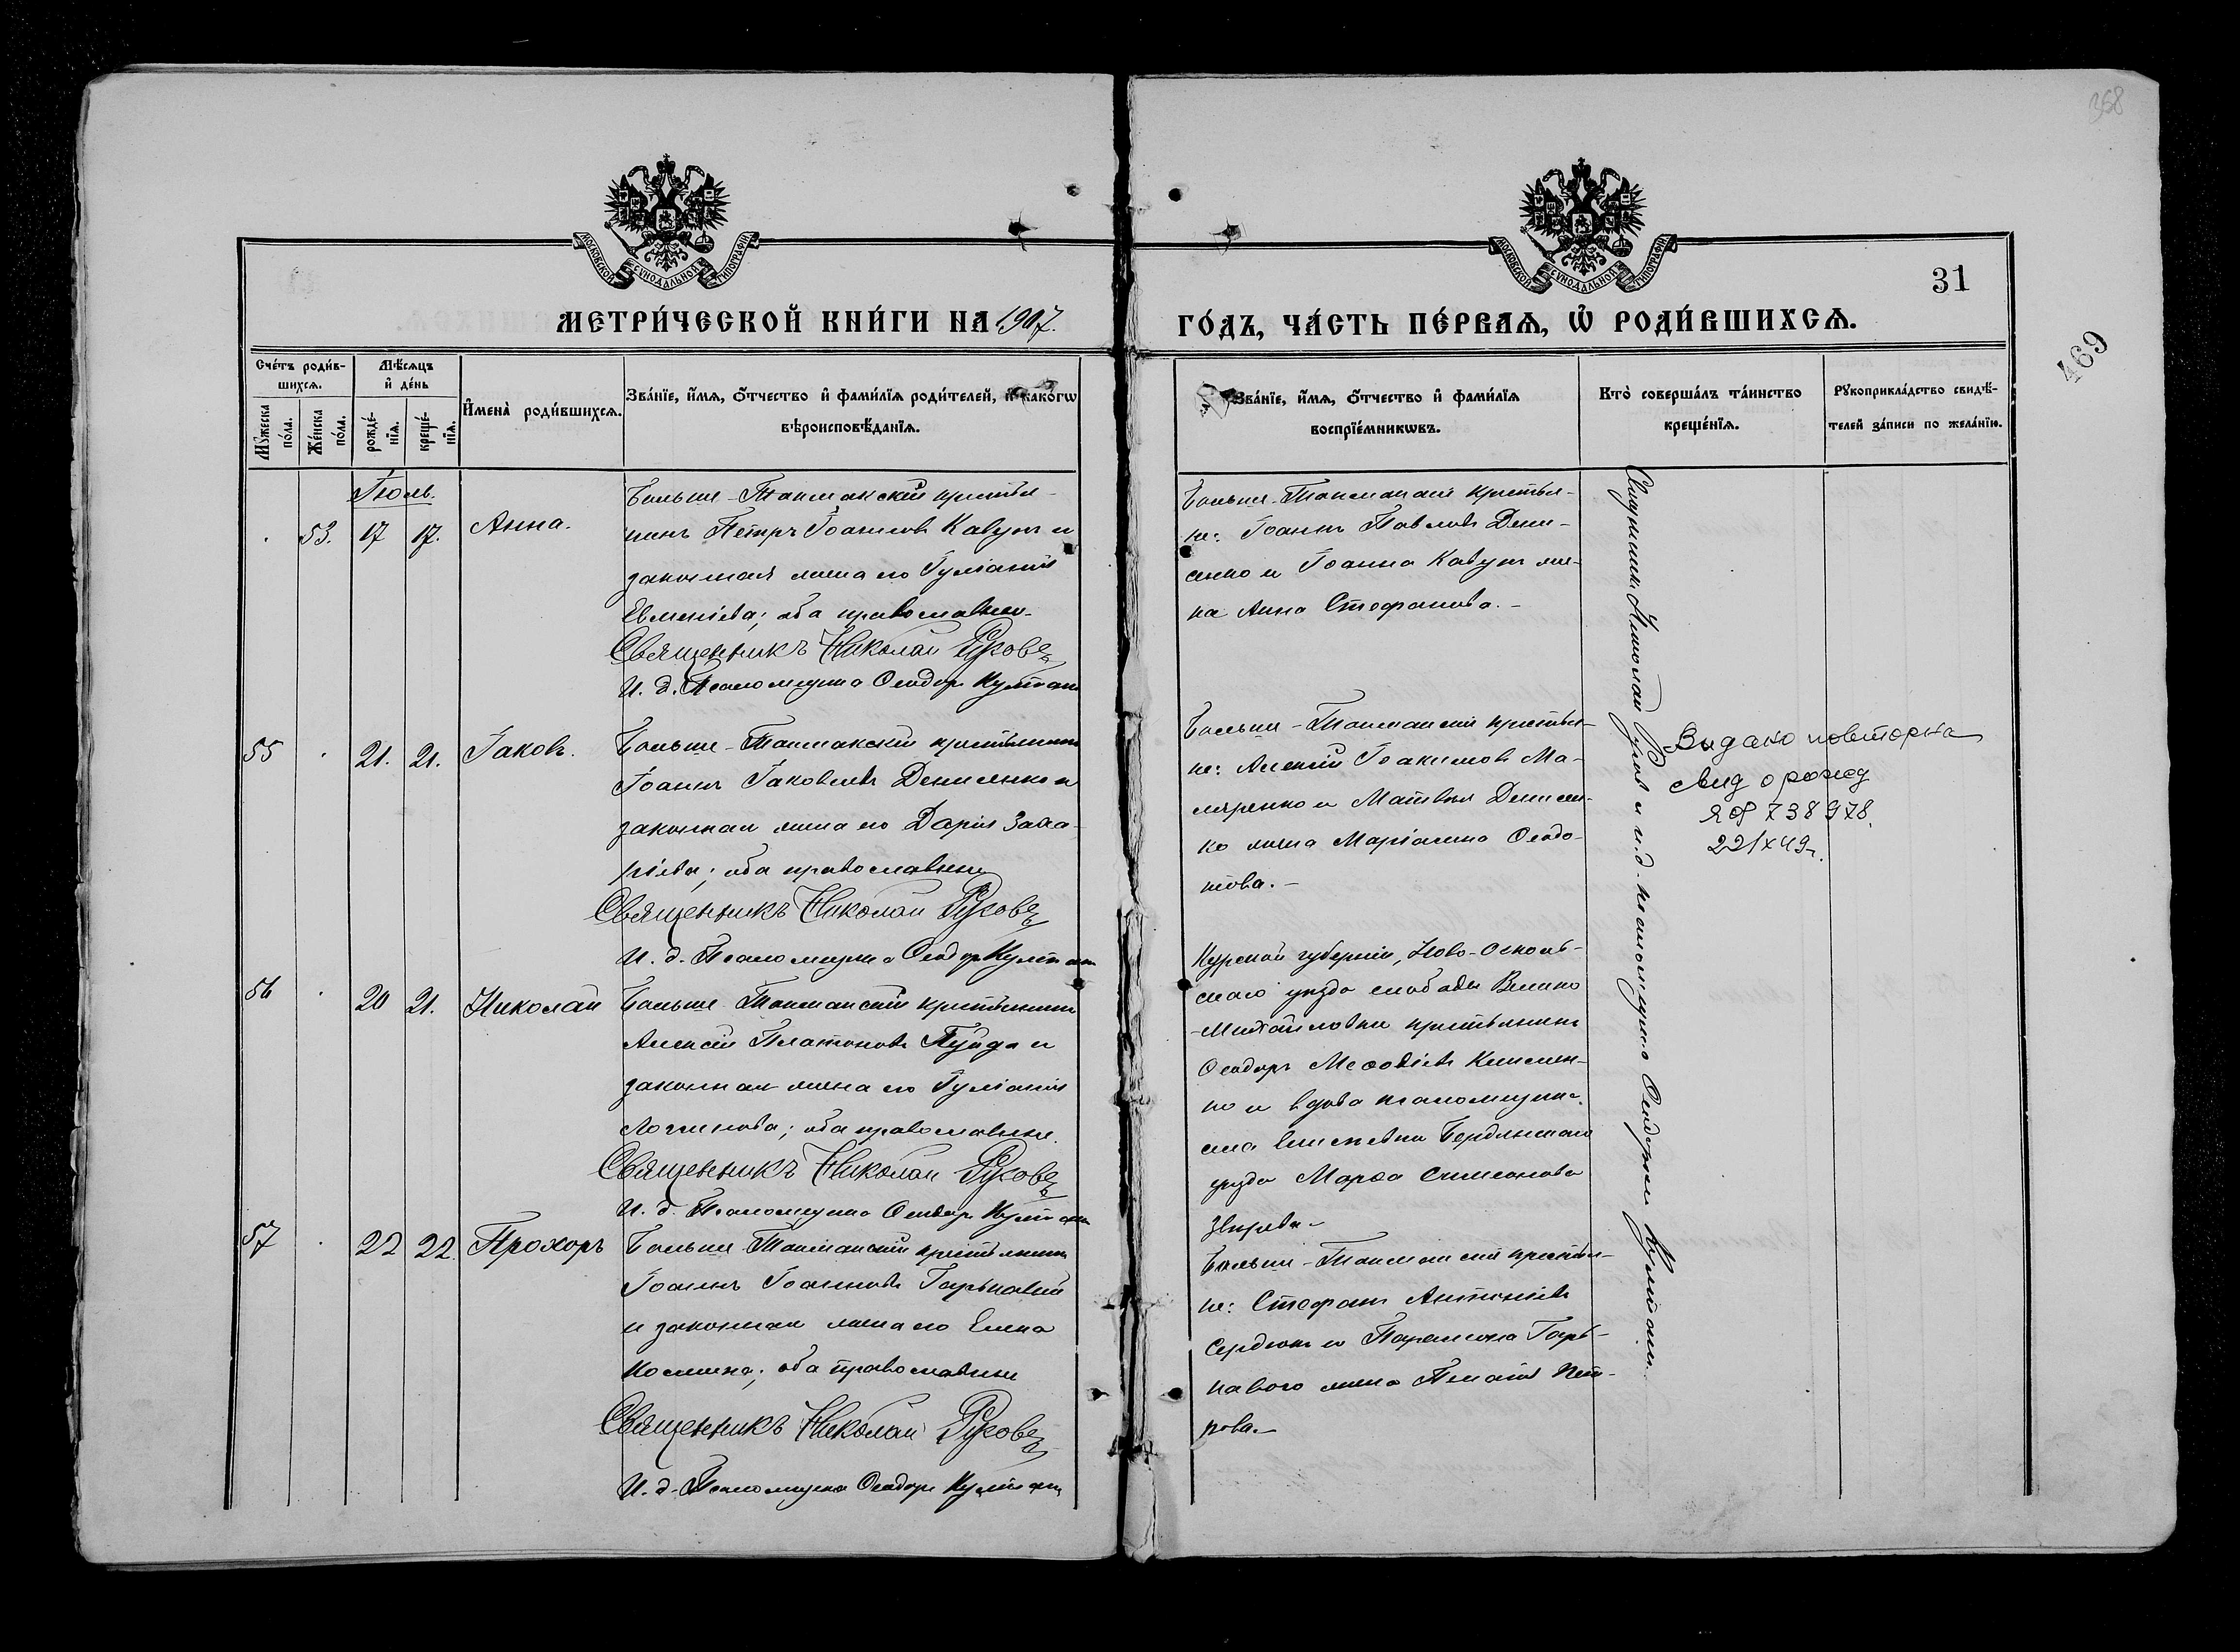 358
МОСКОВСКОЙ СУНОДАЛЬНОЙ ТИПОГРАФІИ
МОСКОВСКОЙ СУНОДАЛЬНОЙ ТИПОГРАФІИ
31
469
МЕТРИ́ЧЕСКОЙ КНИ́ГИ НА 1907.
ГО́ДЪ, ЧА́СТЬ ПЕ́РВАЯ, Ѡ҆ РОДИ́ВШИХСЯ.
Сче́тъ роди́в-
шихся.
Мꙋ́жеска по́ла.
Же́нска по́ла.
Мѣ́сяцъ
и҆ де́нь
рожде́-
нїя.
креще́-
нїя.
И҆мена̀ роди́вшихся.
Зва́нїе, и҆́мя, ѻ҆́тчество и҆ фами́лїя роди́телей, и҆ како́гѡ
вѣроисповѣ́данїя.
Зва́нїе, и҆́мя, ѻ҆́тчество и҆ фами́лїя
воспрїе́мникѡвъ.
Кто̀ соверша́лъ та́инство
креще́нїя.
Рꙋкоприкла́дство свидѣ́-
телей за́писи по жела́нїю.
Іюль.
53. 17 17. Анна.
Больше-Токмакскій крестья-
нинъ Петръ Іоакимовъ Кавунъ и
законная жена его Гуліанія
Евменіева; оба православные.
Священникъ Николай Руковъ
И. д. Псаломщика Ѳеодоръ
Больше-Токмакскіе крестья-
не: Іоаннъ Павловъ Дени-
сенко и Іоанна Кавунъ же-
на Анна Стефанова.-
55 21. 21. Іаковъ.
Больше-Токмакскій крестьянинъ
Іоаннъ Іаковлевъ Денисенко и
законная жена его Дарія Заха-
ріева; оба православные
Священникъ Николай Руковъ
И. д. Псаломщика Ѳеодоръ
Больше-Токмакскіе крестья-
не: Алексій Іоакимовъ Ма-
ляренко и Матвѣя Денисен-
ко жена Маріанна Ѳеодо-
това.-
Видано повторна
свид о рожд
ЯФ 738978.
22/X 49г.
56 20 21. Николай
Больше-Токмакскій крестьянинъ
Алексій Платоновъ Гуйда и
законная жена его Гуліанія
Логинова; оба православные.
Священникъ Николай Руковъ
И. д. Псаломщика Ѳеодоръ
Курской губерніи, Ново-Осколь-
скаго уѣзда слободы Велико
-Михайловки крестьянинъ
Ѳеодоръ Меѳодіевъ Клименко-
но и вдова псаломщика
села Елисѣевки Бердянскаго
уѣзда Марѳа Симеонова
Звѣрева.-
57 22 22. Прохоръ
Больше-Токмакскій крестьянинъ
Іоаннъ Іоанновъ Гарькавый
и законная жена его Елена
Космина; оба православные
Священникъ Николай Руковъ
И. д. Псаломщика Ѳеодоръ
Больше-Токмакскіе крестья-
не: Стефанъ Антоніевъ
Сердюкъ и Парамона Гарь-
каваго жена Пелагія Пет-
рова.-
Священникъ Николай Руковъ и и.д. псаломщика Ѳеодоръ